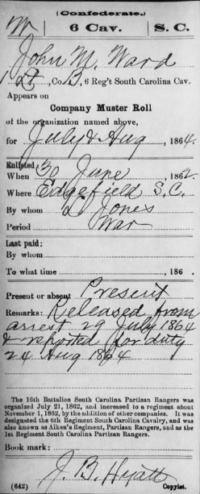 (Confederate.)
W 6 Cav. S. C.
John M. Ward
Lt, Co. B, 6 Reg't South Carolina Cav.
Appears on
Company Muster Roll
of the organization named above,
for July & Aug, 1864.
Enlisted:
When 30 June, 1862.
Where Edgefield S.C.
By whom L Jones
Period War
Last paid:
By whom
To what time , 186 .
Present or absent Present
Remarks: Released from
arrest 29 July 1864
& reported for duty
24 Aug 1864
The 16th Battalion South Carolina Partisan Rangers was
organized July 21, 1862, and increased to a regiment about
November 1, 1862, by the addition of other companies. It was
designated the 6th Regiment South Carolina Cavalry, and was
also known as Aiken's Regiment, Partisan Rangers, and as the
1st Regiment South Carolina Partisan Rangers.
Book mark:
J. B. Hyatt
(642) Copyist.